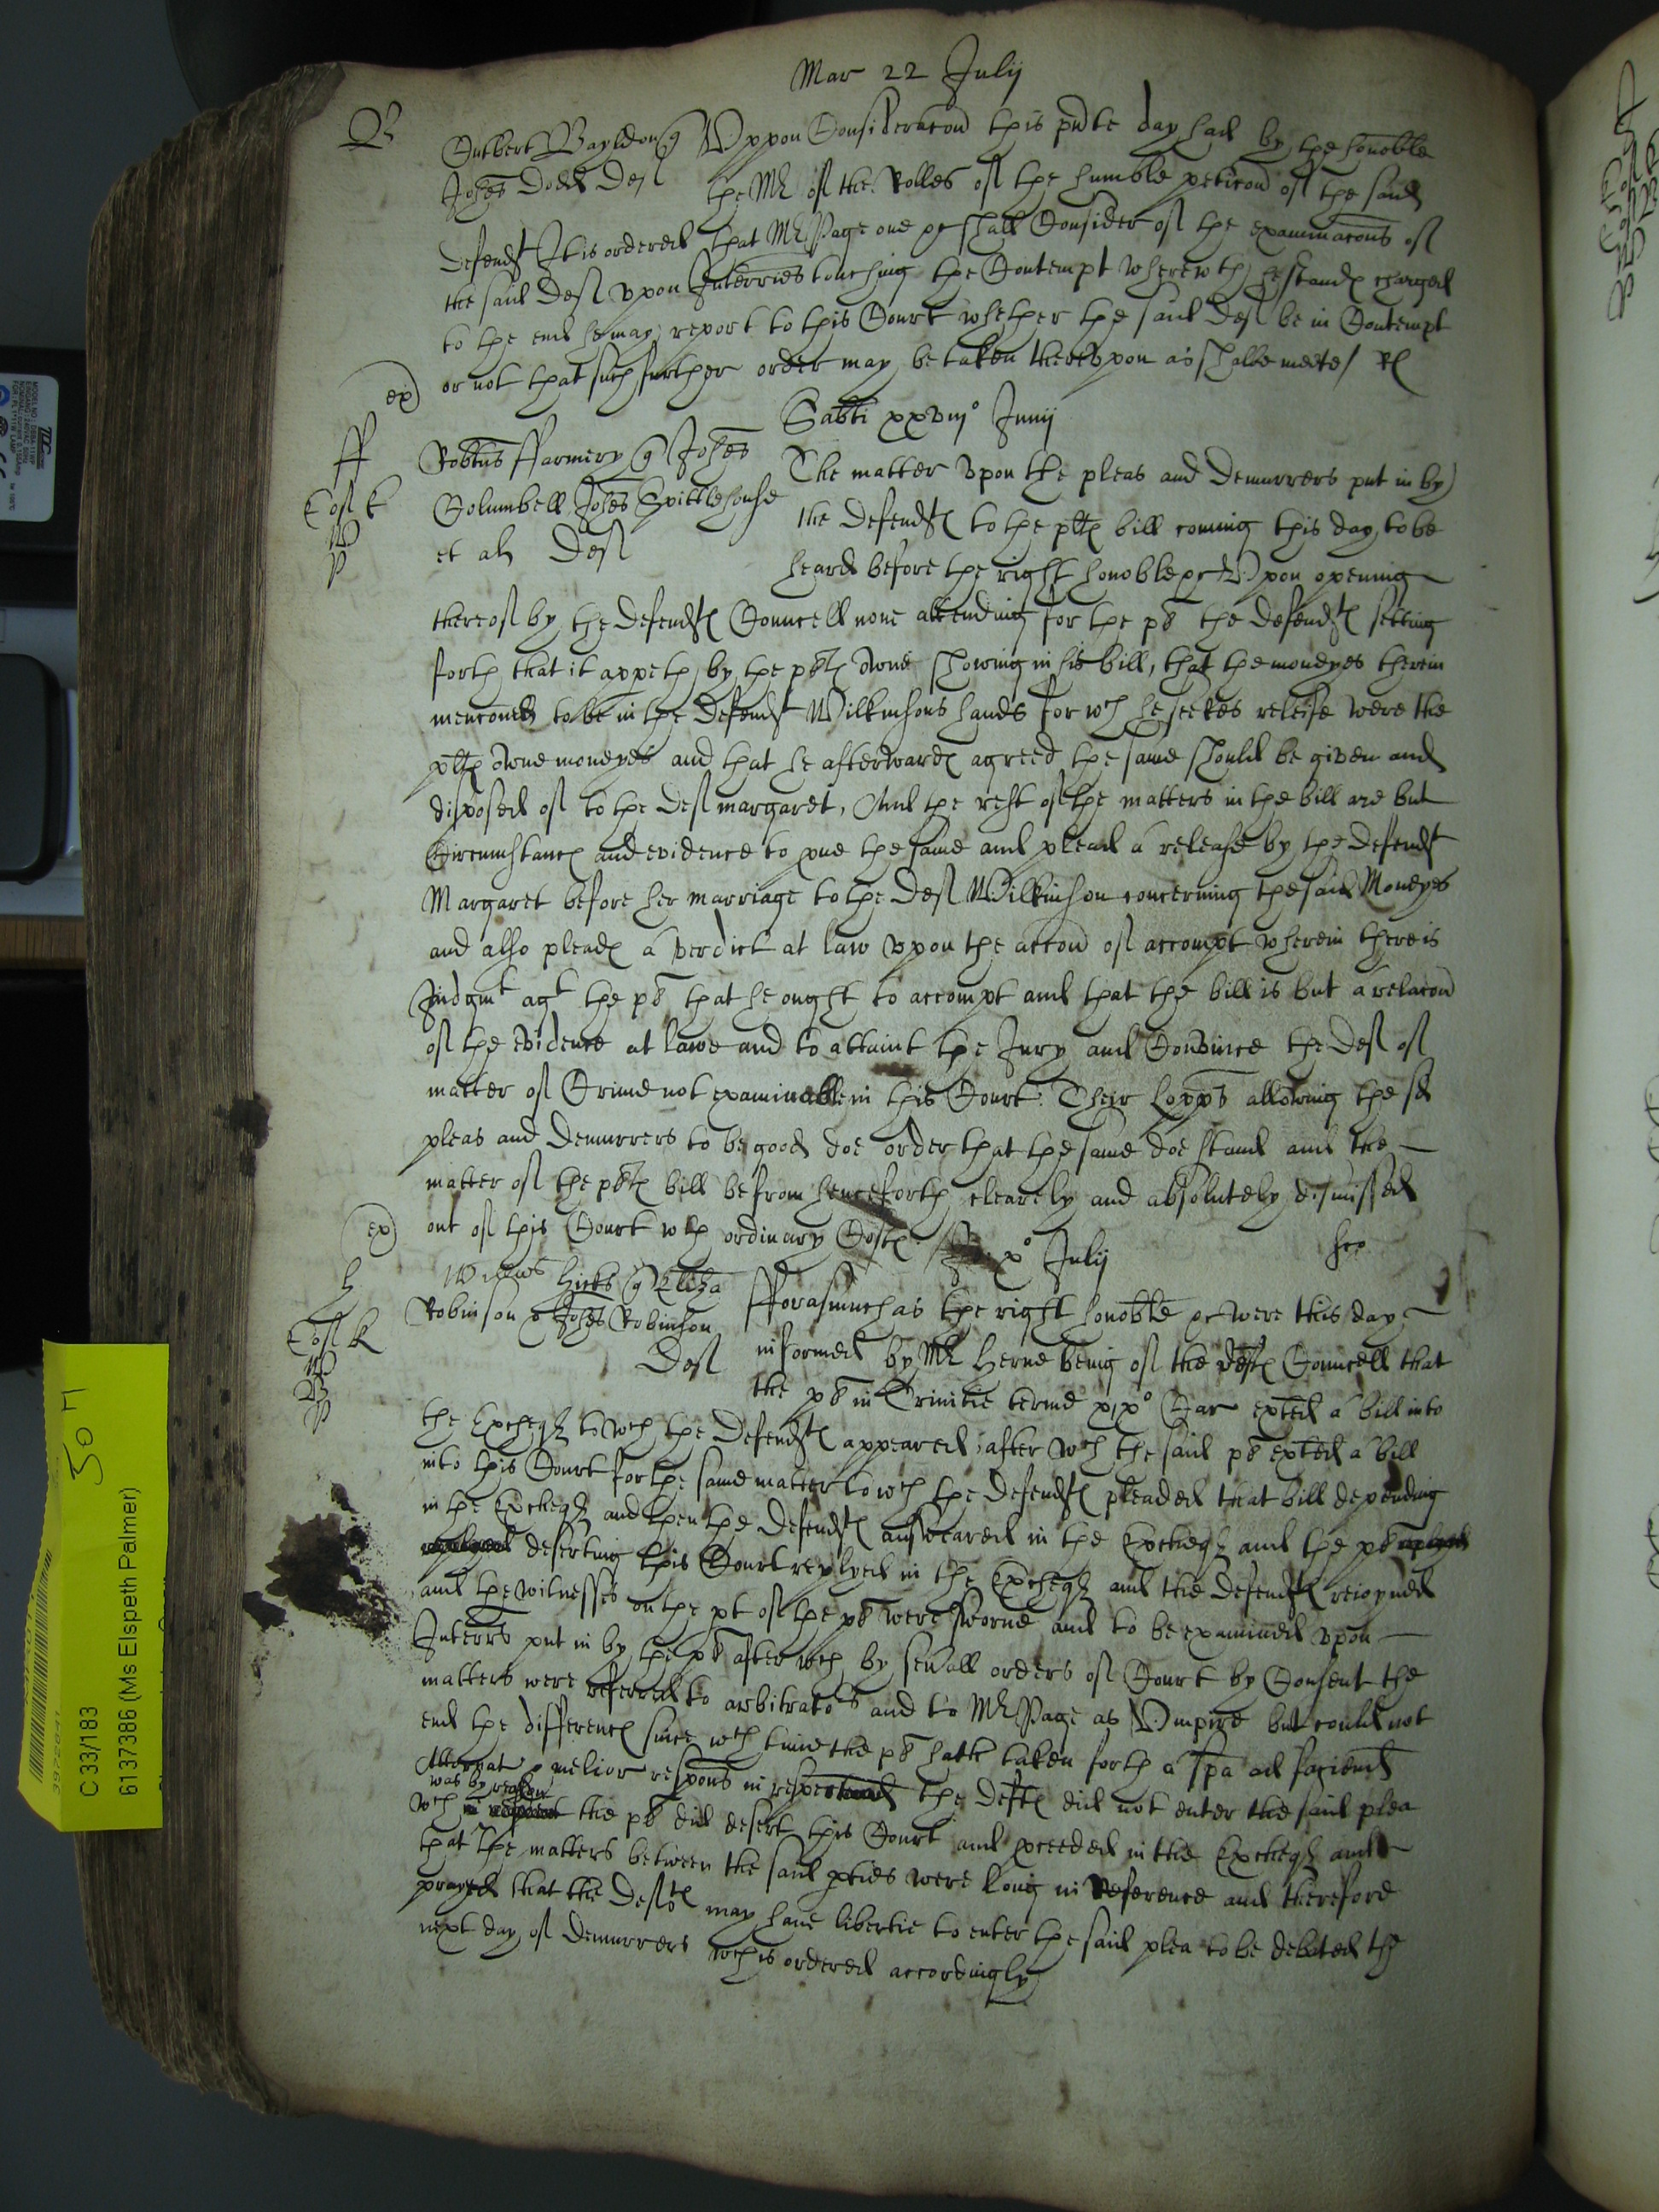 Mar 22 Julij
B
Cutbert Bayldon q Uppon Consideracon this pnte day had by the honoble
Johes Dodd Def the Mr of the Rolles of the humble peticon of the said
defendt It is ordered that Mr Page one &c shall Consider of the examinacons of
the said Def upon Interries touching the Contempt wherewth he standes charged
to the end he may report to this Court whether the said Def be in Contempt
or not that such further order may be taken thereupon as shalbe meete / Rl
ex
Sabti xxviijo Junij
ff
Robtus ffarmery q Johes The matter upon the pleas and demurrers put in by
Columbell Johes Spittlehouse the defendtes to the pltes bill coming this day to be
et al Def heard before the right honoble &c Upon opening
thereof by the defendtes Councell none attending for the pt the defendtes setting
forth that it appeth by the pltes owne showing in his bill, that the moneyes therein
menconed to be in the defendt Wilkinsons hands for wch he seekes releife were the
pltes owne moneyes and that he afterwardes agreed the same should be given and
disposed of to the Def margaret, And the rest of the matters in the bill are but
Circumstances and evidence to pve the same and plead a release by the defendt
Margaret before her marriage to the Def Wilkinson concerning the said Moneyes
and also pleades a verdict at law upon the accon of accompt wherein there is
Judgmt agt the plt that he ought to accompt and that the bill is but a relacon
of the evidence at lawe and to attaint the Jury and Convince the Def of
matter of Crime not examinable in this Court. Their Lopps allowing the sd
pleas and demurrers to be good doe order that the same doe stand and the
matter of the pltes bill be from henceforth clearely and absolutely dismissed
out of this Court wth ordinary Costes
ex
xo Julij
h
Willus Hicks q Eliza fforasmuch as the right honoble &c were this day
Robinson & Johes Robinson informed by Mr Herne being of the deftes Councell that
Def the plt in Trinitie terme xixo Car exted a bill into
the Excheqr to wch the defendtes appeared, after wch the said plt exted a bill
into this Court for the same matter to wch the defendtes pleaded that bill depending
in the Excheqr and then the defendtes answeared in the Excheqr and the plt
deserting this Court replyed in the Excheqr and the defendtes reioyned
and the witnesses on the pt of the plt were sworne and to be examined upon
Interrs put in by the plt after wch by sevall orders of Court by Consent the
matters were referred to arbitrators and to Mr Page as Umpire but could not
end the differences since wch time the plt hath taken forth a spa ad faciend
Attornat & melior respons in respect the deftes did not enter the said plea
was by reason
wch the plt did desert this Court and pceeded in the Excheqr and
that the matters betweene the said pties were long in Reference and therefore
prayed that the Deftes may have libertie to enter the said plea to be debated the
next day of demurrers wch is ordered accordingly
C 33/183
6137386 (Ms Elspeth Palmer)